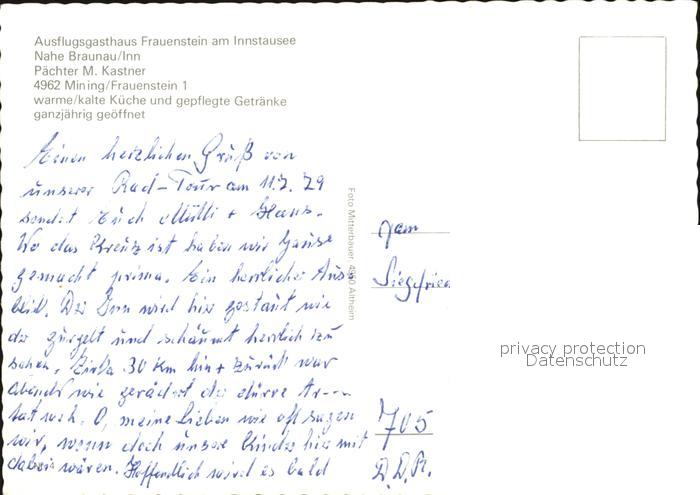 Ausflugsgasthaus Frauenstein am Innstausee
Nahe Braunau/Inn
Pächter M. Kastner
4962 Mining/Frauenstein 1
warme/kalte Küche und gepflegte Getränke
ganzjährig geöffnet
Einen herzlichen Gruß von
unserer Rad-Tour am 11.7. 79
sendet Euch Mutti + Hans.
Wo das Kreuz ist haben wir Pause
gemacht prima. Ein herrlicher Aus
blick. Der Inn wird hier gestaut wie
der gurgelt und schäumt herrlich zu
sehen. Zirka 30 Km hin + zurück war
abends wie gerädert der dürre Ar---
tat weh. O, meine Lieben wie oft sagen
wir, wenn doch unsere Kinder hier mit
dabei wären. Hoffendlich wird es bald
Foto Mitterbauer, 4950 Altheim
Fam
Siegfried
705
D.D.R.
privacy protection
Datenschutz